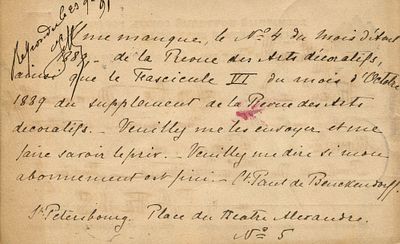 Il me manque, le No 4 du mois d'Août
1889 – de la Revue des Arts décoratifs,
ainsi que le Fascicule VII du mois d'Octobre
1889 du supplement de la Revue des Arts
decoratifs. – Veuillez me les envoyer et me
faire savoir le prix. – Veuillez me dire si mon
abonnement est fini. – Ct. Paul de Benckendorff.
St. Petersbourg. Place du Theatre Alexandre.
No 5